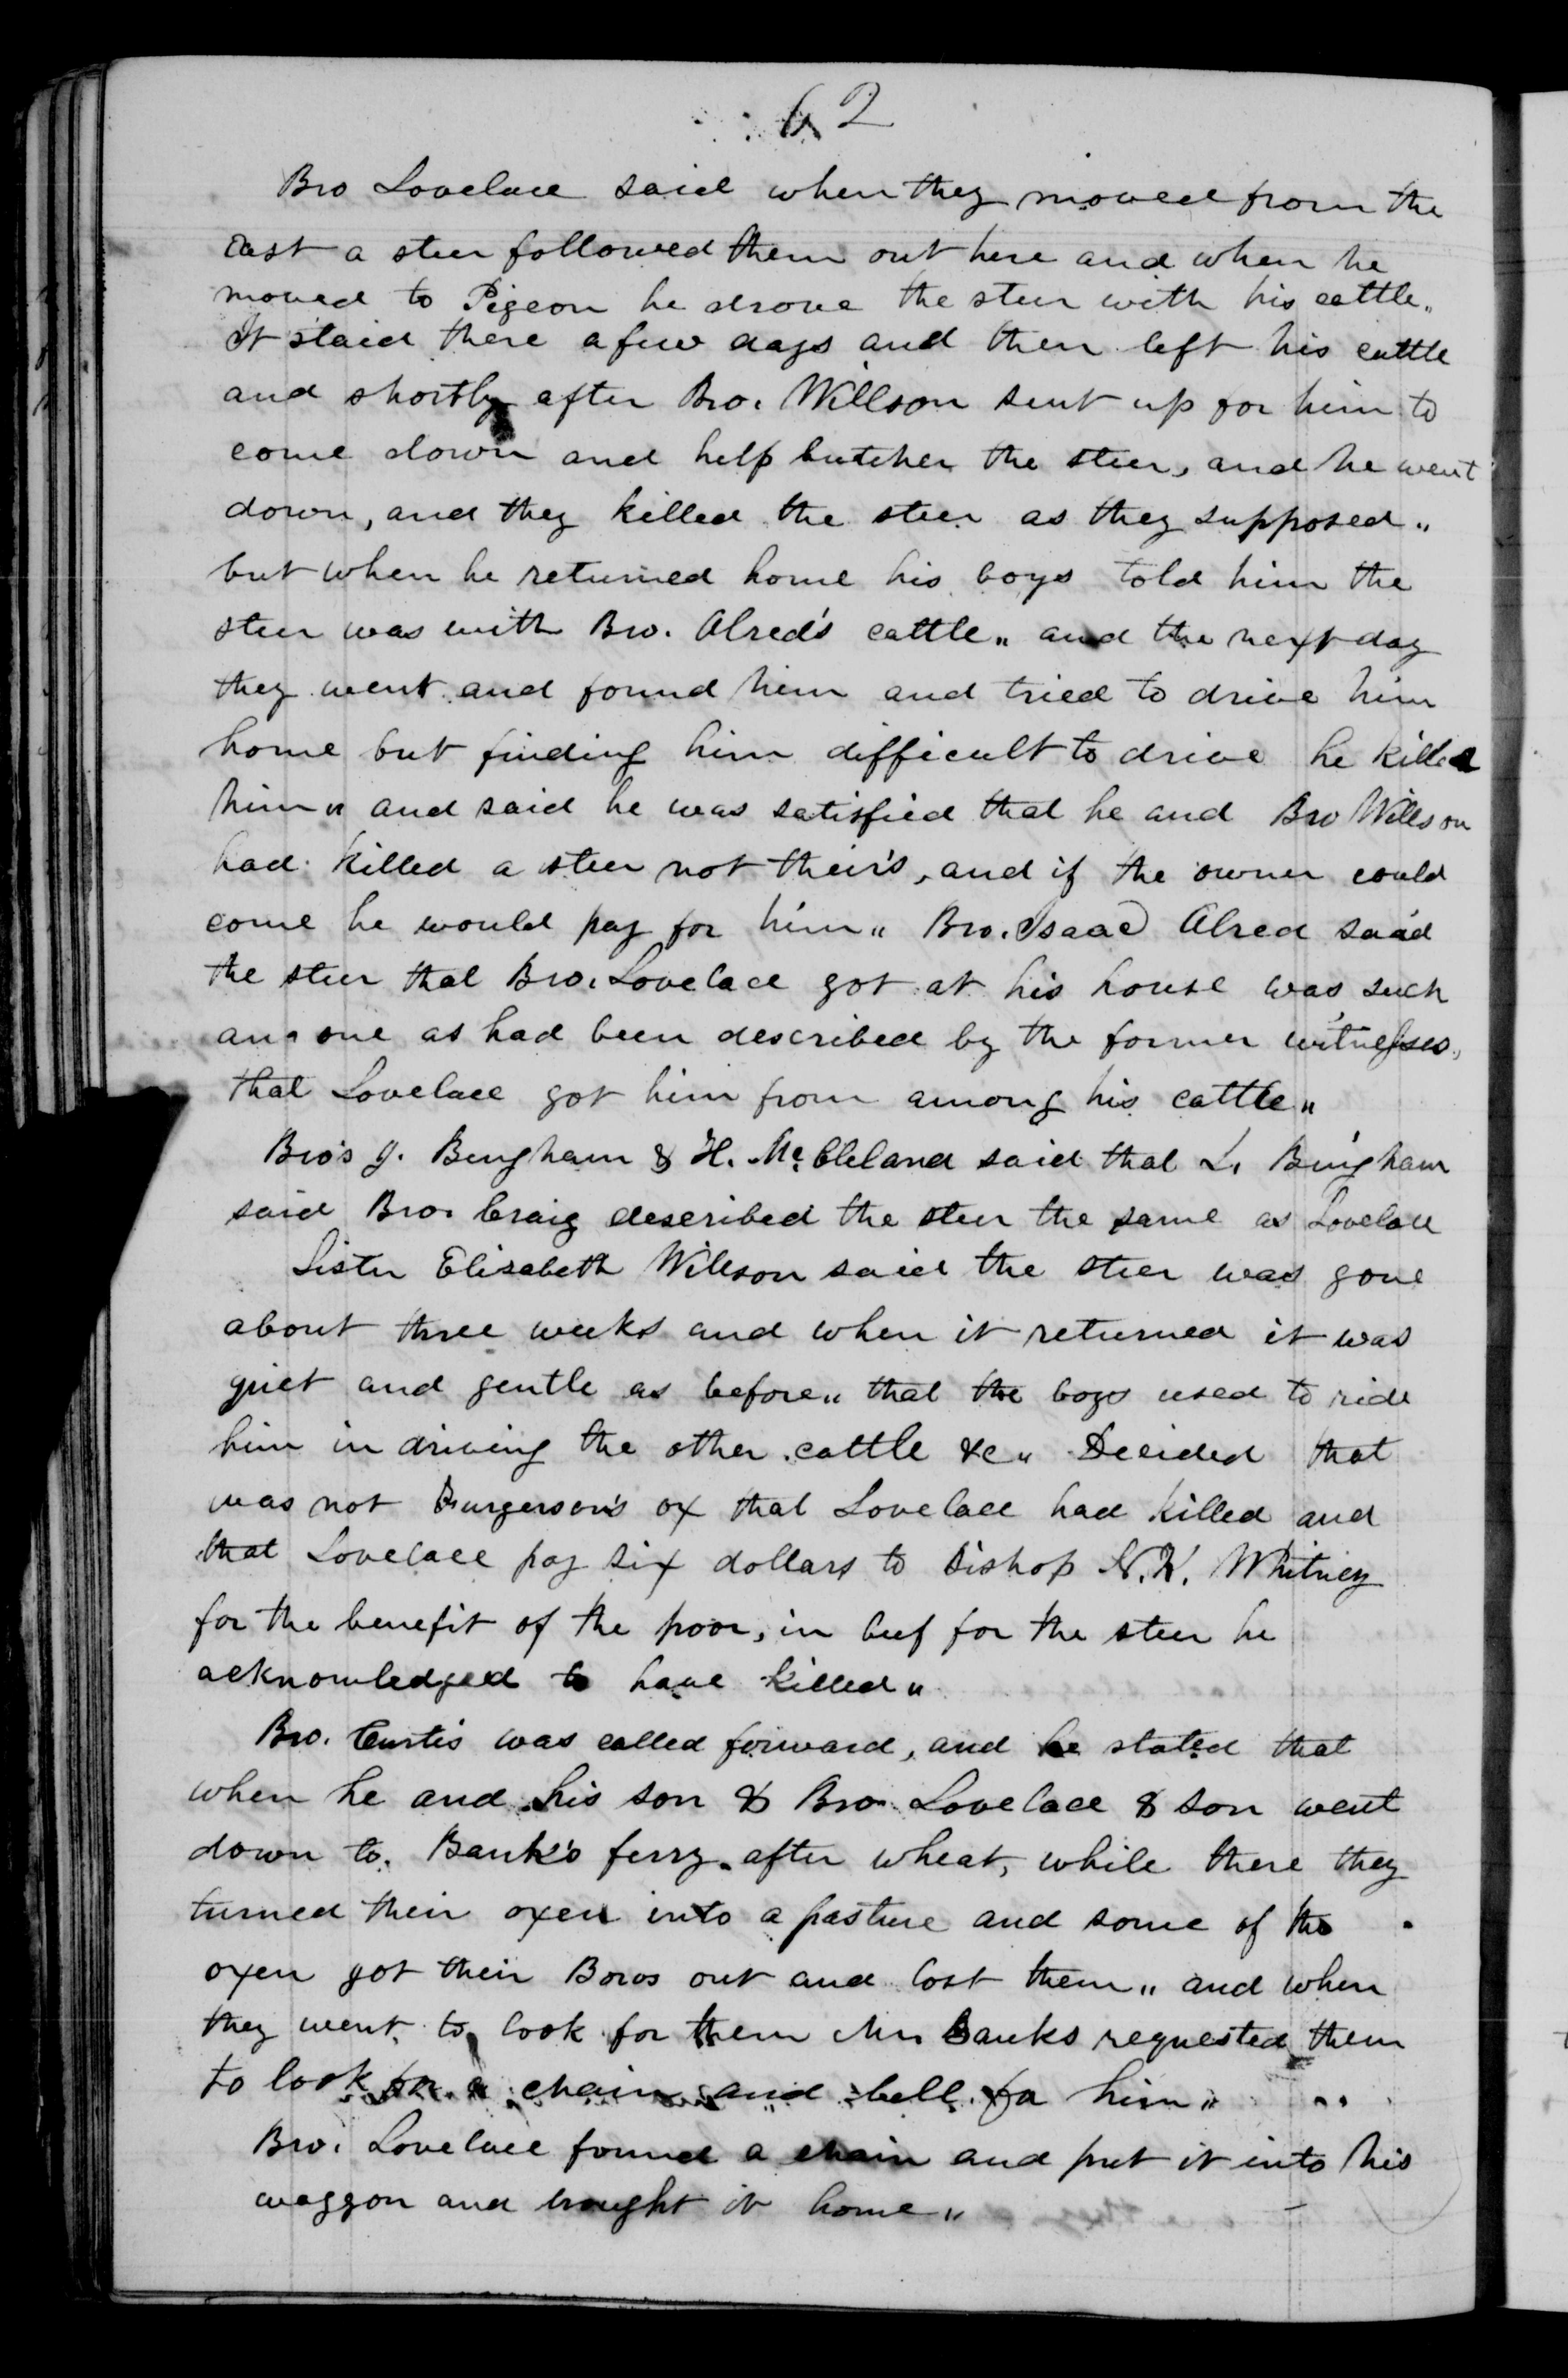 62
Bro Lovelace said when they moved from the
east a steer followed them out here and when he
moved to Pigeon he drove the steer with his cattle„
It staid there a few days and then left his cattle
and shortly after Bro. Willson sent up for him to
come down and help butcher the steer, and he went
down, and they killed the steer as they supposed„
but when he returned home his boys told him the
steer was with Bro. Alred's cattle„ and the next day
they went and found him and tried to drive him
home but finding him difficult to drive he killed
him„ and said he was satisfied that he and Bro Willson
had killed a steer not their's, and if the owner could
come he would pay for him„ Bro. Isaac Alred said
the steer that Bro. Lovelace got at his house was such
an one as had been described by the former witnesses,
that Lovelace got him from among his cattle„
Bro's J. Bingham & H. McCleland said that L. Bingham
said Bro. Craig described the steer the same as Lovelace
Sister Elisabeth Willson said the steer was gone
about three weeks and when it returned it was
quiet and gentle as before„ that the boys used to ride
him in driving the other cattle &c„ Decided that
was not Burgerson's ox that Lovelace had killed and
that Lovelace pay six dollars to Bishop N.K. Whitney
for the benefit of the poor, in beef for the steer he
acknowledged to have killed„
Bro. Curtis was called forward, and he stated that
when he and his son & Bro. Lovelace & son went
down to Bank's ferry after wheat, while there they
turned their oxen into a pasture and some of the
oxen got their Bows out and lost them„ and when
they went to look for them Mr Banks requested them
to look for a chain and bell for him„
Bro. Lovelace found a chain and put it into his
waggon and brought it home„